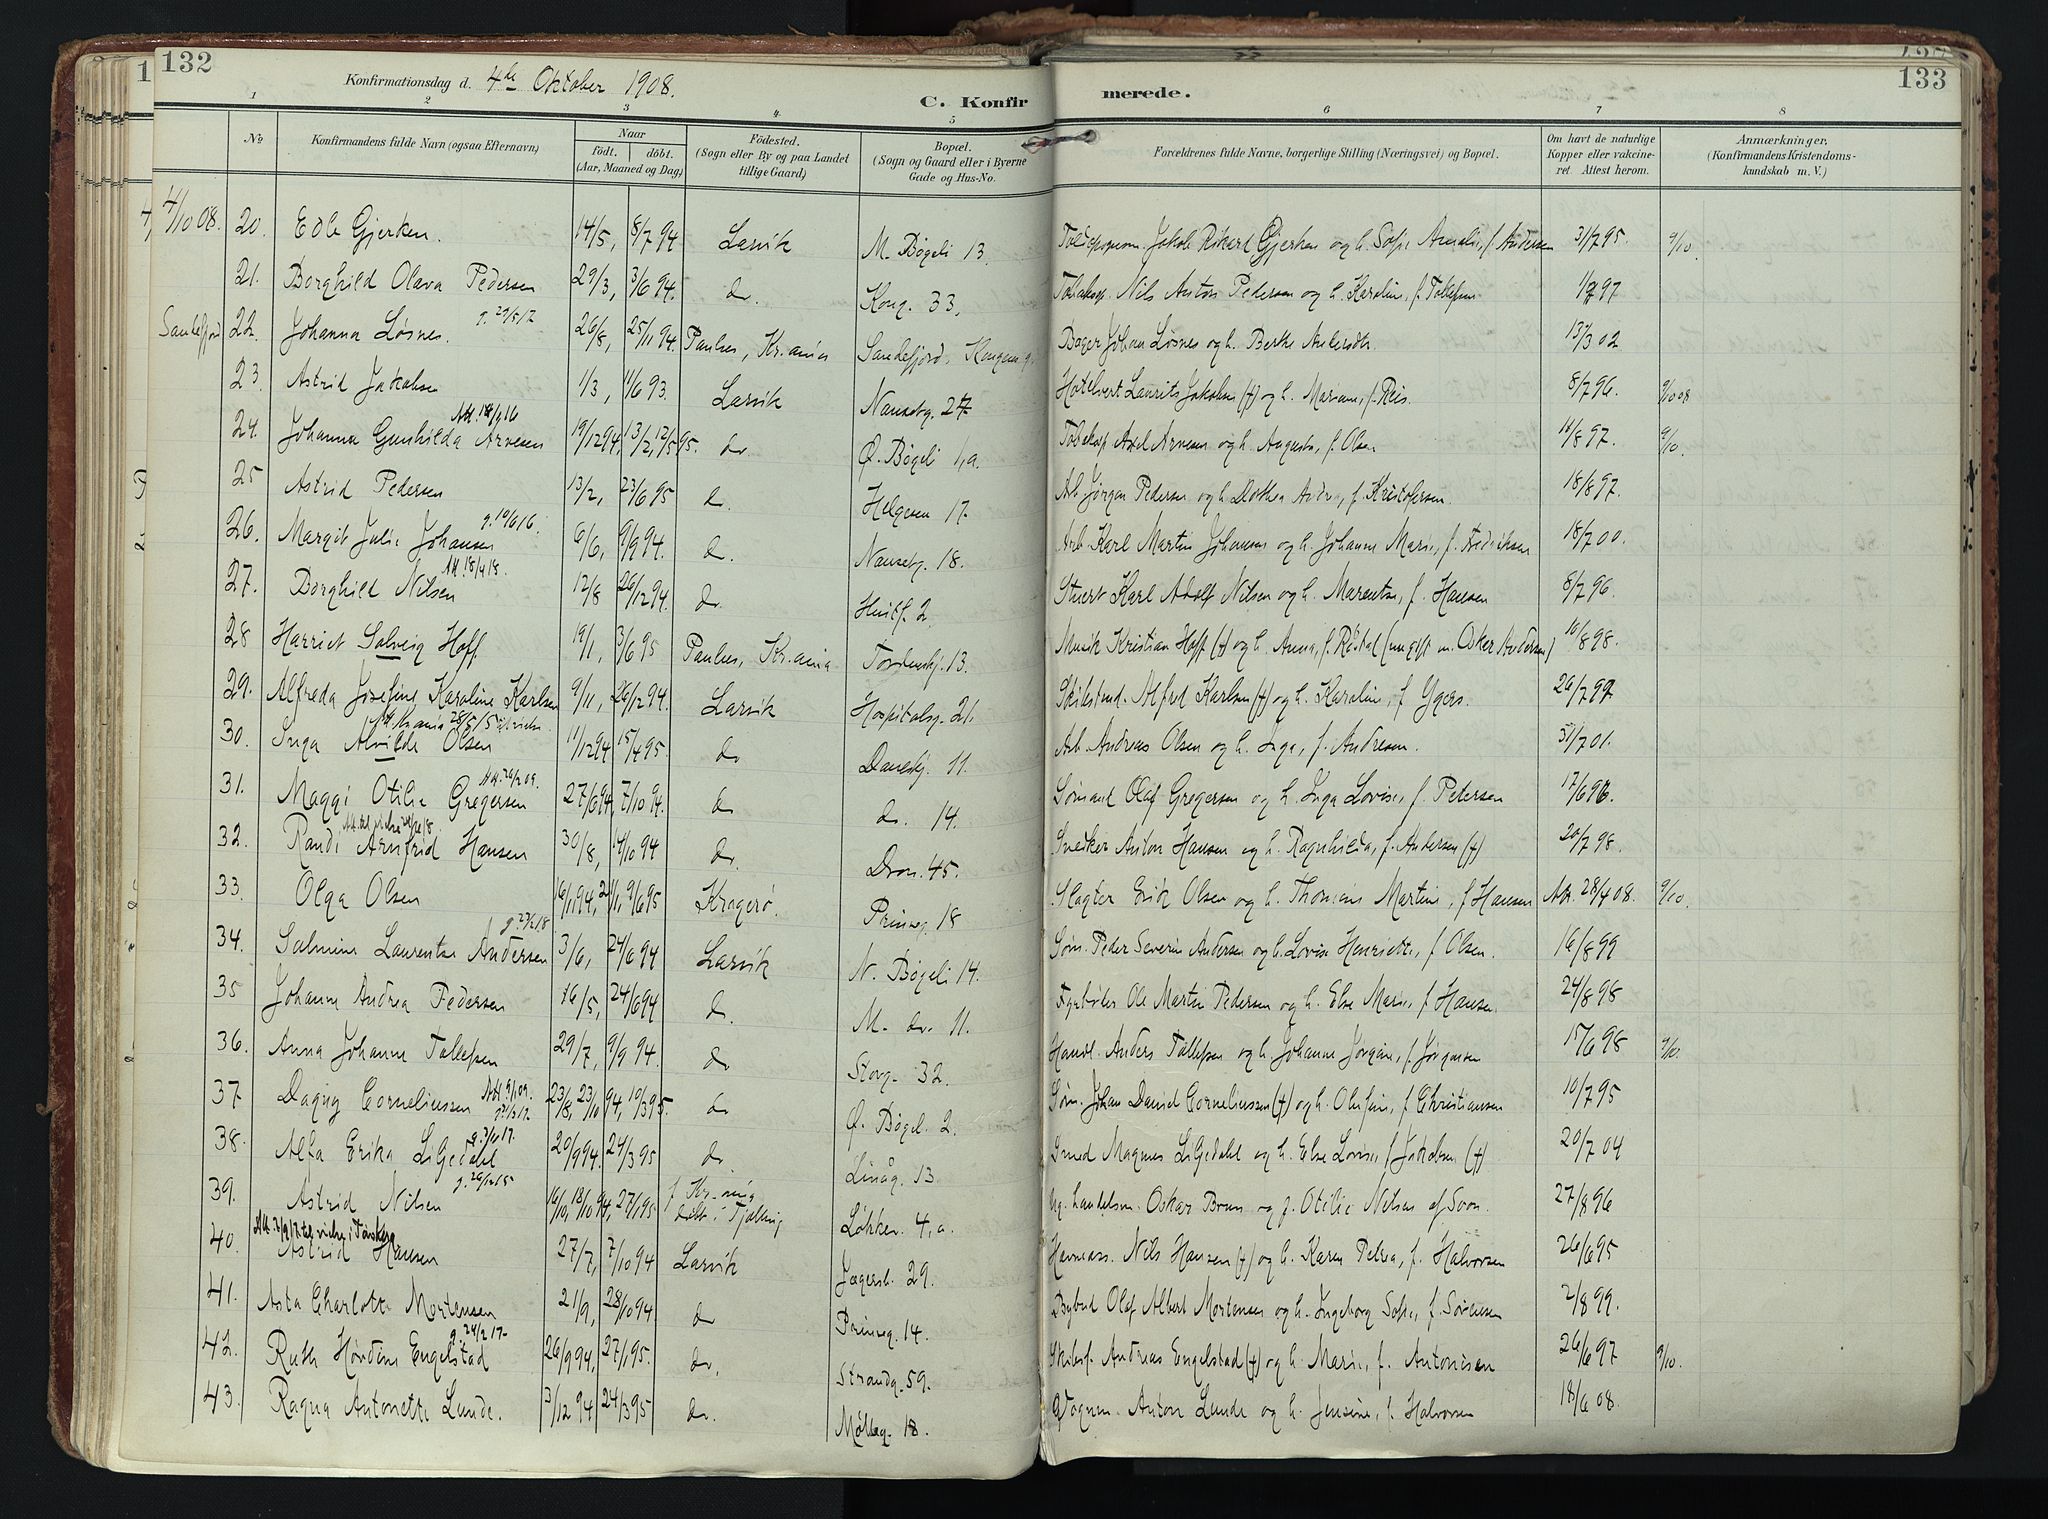 132
Konfirmationsdag d. 4de Oktober 1908.
C. Konfir
merede.
133
1 2 3 4 5 6 7 8
No
Konfirmandens fulde Navn (ogsaa Efternavn)
Naar
födt. döbt.
(Aar, Maaned og Dag)
Födested.
(Sogn eller By og paa Landet tillige Gaard)
Bopæl.
(Sogn og Gaard eller i Byerne Gade og Hus-No.
Forældrenes fulde Navne, borgerlige Stilling (Næringsvei) og Bopæl.
Om havt de naturlige Kopper eller vakcineret. Attest herom.
Anmærkninger.
(Konfirmandens Kristendomskundskab m. V.)
4/10 08. 20. Edle Gjerken. 14/5, 8/7 94 Larvik M. Bøgeli 13. Jakob Rikard Gjerken og h. Sofie Amalie, f. Andersen 31/7 95. 9/10.
21. Borghild Olava Pedersen 29/3, 3/6 94. do. Kong. 33. Nils Anton Pedersen og h. Karoline, f. Tollefsen 97
Sandefjord 22. Johanna Løsnes. g. 29/5 12 26/8, 25/11 94. Paulus, Kr.ania Sandefjord, Bager Johan Løsnes og h. Berthe Andersdtr. 13/3 02
23. Astrid Jakobsen 1/3, 11/6 93. Larvik Nansetg. 27 Hotelvert Laurits Jakobsen (†) og h. Mariane, f. Reis. 8/7 96. 9/10 08
24. Johanna Gunhilda Arvesen 19/12 94, 13/2, 12/5 95. do. Ø. Bøgeli 1,a. Axel Arvesen og h. Augusta, f. Olsen 18/8 97. 9/10.
25 Astrid Pedersen 13/2, 23/6 95 d. Helgesen 17. Arb. Jørgen Pedersen og h. Dothea f. Kristofersen. 18/8 97.
26. Margit Julie Johansen g. 10/6 16. 6/6, 9/9 94. d. Nansetg. 18. Arb. Karl Martin Johansen og h. Johanne Marie, f. Fredriksen 18/7 00.
27. Borghild Nilsen Att. 18/4 18. 12/8 26/12 94. do Huitf. 2. Stuert Karl Adolf Nilsen og h. Marentse, f. Hansen 8/7 96.
28 Harriet Solveig Hoff. 19/1, 3/6 95 Paulus, Kr.ania Tordenskj. 13. Musik Kristian Hoff (†) og h. Anna, f. Røstad (omgift m. Oskar Andersen) 10/8 98.
29. Alfreda Josefine Karoline Karlsen 9/11, 26/12 94. Larvik Hospitalsg. 21. Alfred Karlsen (†) og h. Karoline, f. 26/7 97.
30. Inga Alvilde Olsen 11/12 94, 15/4 95. do Daneskj. 11. Arb. Andreas Olsen og h. Inga, f. Andresen. 31/7 01.
31. Maggi Otilie Gregersen Att. 29/2 09. 27/6 94, 7/10 94. do do. 14. Sømand Olaf Gregersen og h. Inga Lovise, f. Pedersen 17/6 96.
32. Randi Arnfrid Hansen 30/8, 14/10 94 do. Dron. 45. Snedker Anton Hansen og h. Ragnhilda, f. Andersen (†) 20/7 98.
33. Olga Olsen 16/1 94, 9/6 95 Kragerø. Prinseg. 18 Slagter Erik Olsen og h. Thomine Martine, f. Hansen Att. 28/4 08. 9/10.
34. Salmine Laurentse Andersen 3/6, 24/6 94 Larvik N. Bøgeli 14. Søm. Peder Severin Andersen og h. Lovise Henriette, f. Olsen. 16/8 99
35 Johanne Andrea Pedersen 16/5, 24/6 94 do. M. do. 11. Fyrbøder Ole Martin Pedersen og h. Else Marie, f. Hansen. 24/8 98
36. Anna Johanne Tollefsen 29/7, 9/9 94. do Storg. 32. Handl. Anders Tollefsen og h. Johanne Jørgine, f. Jørgensen 17/6 98 9/10.
37 Dagny Corneliussen Att. 9/1 09. 23/8, 23/10 94, 10/3 95. do Ø. Bøgel. 2. Søm. Johan Daniel Corneliussen (†) og h. Olufine, f. Christiansen 10/7 95
38. Alfa Erika Ligedahl 20/9 94. 24/3 95 do. Linåg. 13. Smed Magnus Ligedahl og h. Else Lovise, f. Jakobsen (†) 20/7 04
39. Astrid Nilsen g. 26/12 15 16/10, 18/10 94, 27/1 95 f. Kr.ania døbt i Tjølling Løkkeg. 4,a. Oskar Brun og p. Otilie Nilsen af Svon. 27/8 96
40. Astrid Hansen 27/7, 7/10 94 Larvik Jegersb. 29. Havneass. Nils Hansen (†) og h. Karen Petrea, f. Halvorsen 26/6 95
41. Asta Charlotte Mortensen 21/9, 28/10 94. do Prinseg. 14. Bybud Olaf Albert Mortensen og h. Ingeborg Sofie, f. Sørensen 2/8 99.
42. Ruth Hørdine Engelstad g. 24/2 17. 26/9 94, 27/1 95. do. Strandg. 59. Skibsf. Andreas Engelstad (†) og h. Marie, f. Antonisen 26/6 97 9/10.
43. Ragna Antonette Lunde. 3/12 94 24/3 95 do. Mølleg. 18. Vognm. Anton Lunde og h. Jensine, f. Halvorsen 18/6 08.